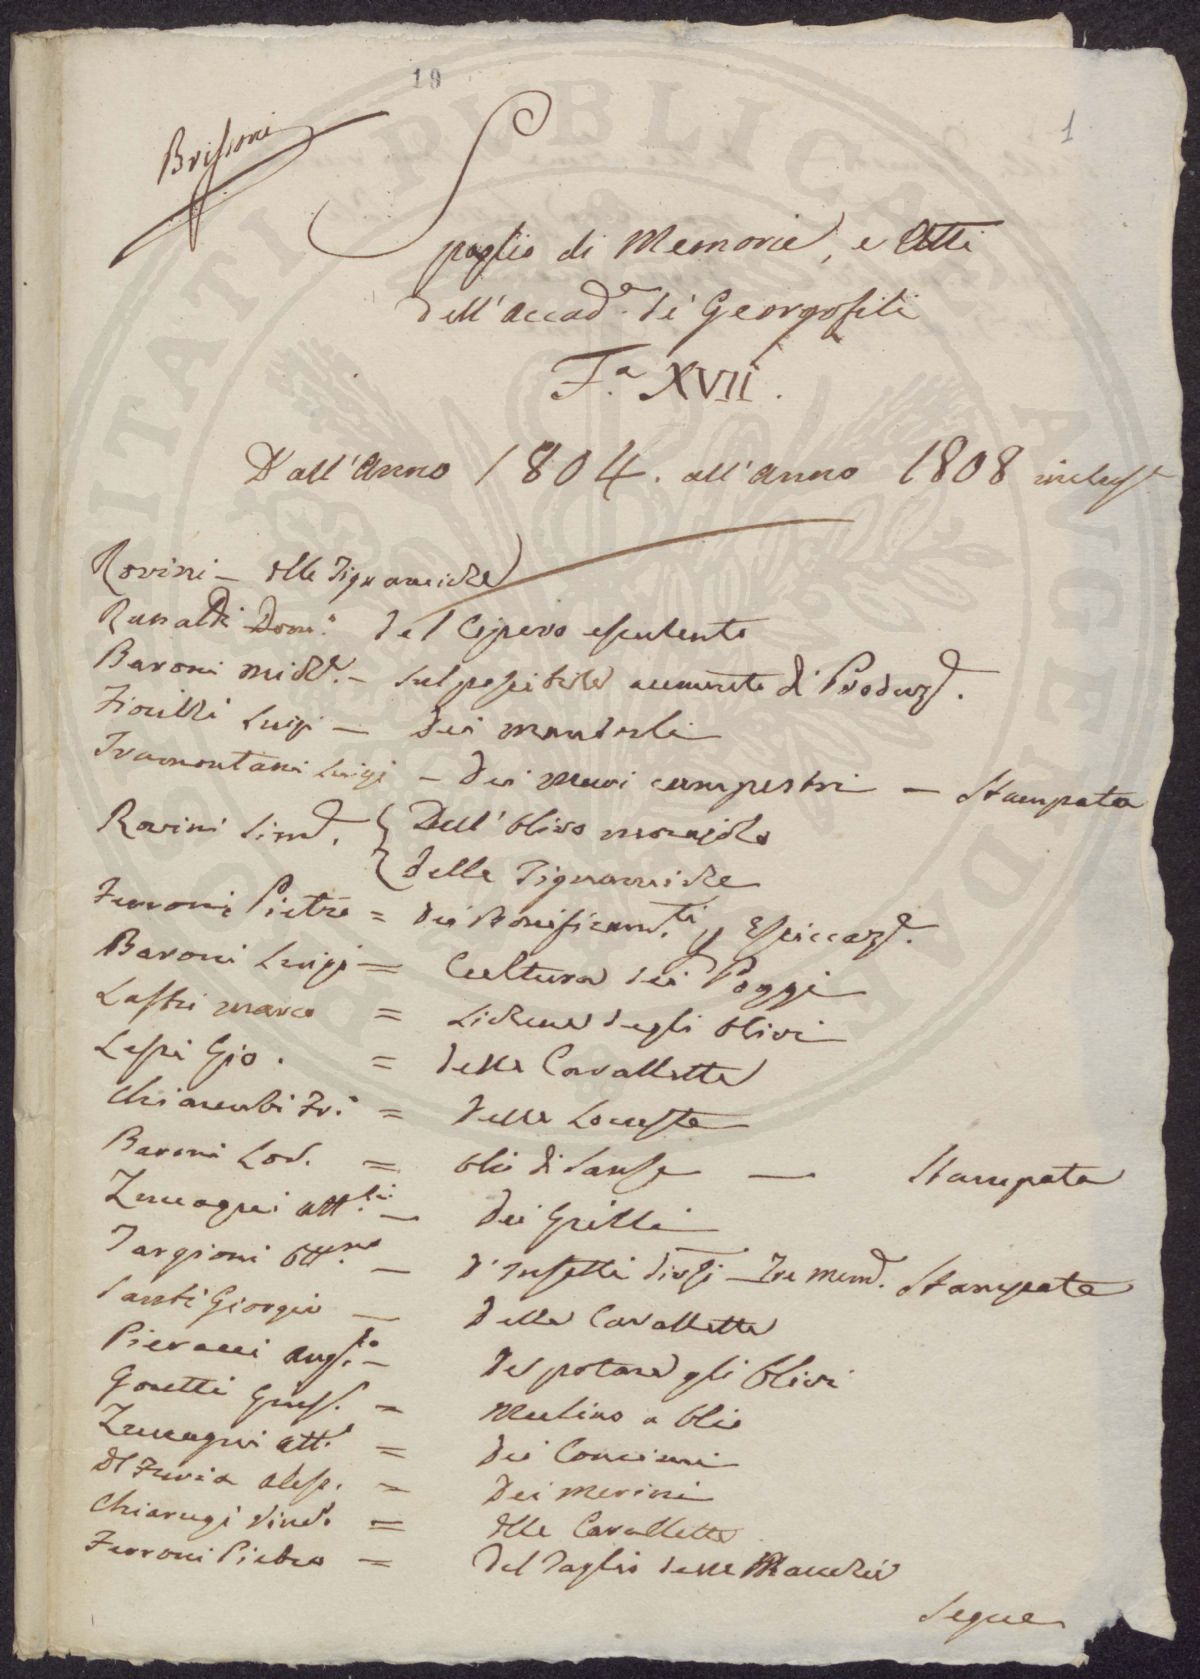 19
1
Brissoni
Spoglio di Memorie, e Atti
dell'Accad.a de' Georgofili
F.a XVII.
Dall'Anno 1804. all'Anno 1808 inclus.e
Rovini — delle Tignamiche
Dom.o del Cipero esculento
Baroni Mich.e — sul possibile aumento di Produz.e.
Fiorilli Luigi — Dei Mandorli
Tramontani Luigi — Dei Muri campestri — Stampata
Rovini Sim.e. { Dell'Olivo morajolo
{ delle Tignamiche
Ferroni Pietro = dei Bonificam.ti p Essiccaz.e.
Baroni Luigi = Cultura dei Poggi
Lastri Marco = Lichene degli Olivi
Lessi Gio. = delle Cavallette
Chiarenti Fr.o = delle Locuste
Baroni Lod. = Olio di Sanse — Stampata
Zuccagni Att.lio — dei Grilli
Targioni Ott.no — d'Insetti div.si — Tre Mem.e. Stampate
Santi Giorgio — delle Cavallette
Pieracci Aug.to — del potare gli Olivi
Gonetti Gius. = Mulino a Olio
Zuccagni Att.o = dei Concimi
Del Furia Aless. = Dei Merini
Chiarugi Vinc.o = delle Cavallette
Ferroni Pietro = del Taglio delle Macchie
Segue
PUBLICAE